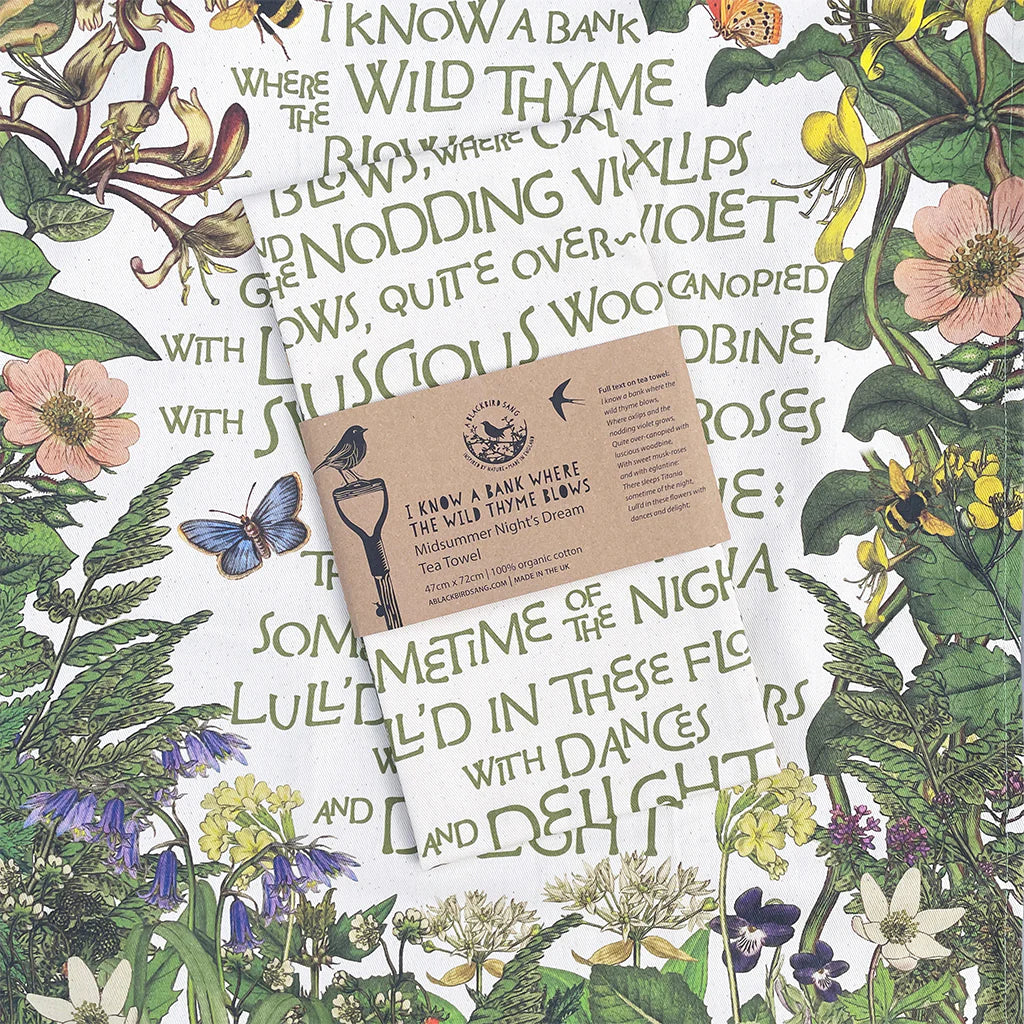 I KNOW A BANK
WHERE THE WILD THYME
XLIPS
VIOLET
CANOPIED
WITH
DBINE,
WITH
ROSES
E:
A
SOM
LULL'D
RS
AND D
BLOWS, WHERE OXL
NODDING VI
OWS, QUITE OVER~
LUSCIOUS WOO
METIME OF THE NIGH
LL'D IN THESE FLO
WITH DANCES
AND DELIGHT
A BLACKBIRD SANG
INSPIRED BY NATURE • MADE IN ENGLAND
I KNOW A BANK WHERE
THE WILD THYME BLOWS
Midsummer Night's Dream
Tea Towel
47cm x 72cm | 100% organic cotton
ABLACKBIRDSANG.COM | MADE IN THE UK
Full text on tea towel:
I know a bank where the
wild thyme blows,
Where oxlips and the
nodding violet grows,
Quite over-canopied with
luscious woodbine,
With sweet musk-roses
and with eglantine:
There sleeps Titania
sometime of the night,
Lull'd in these flowers with
dances and delight;